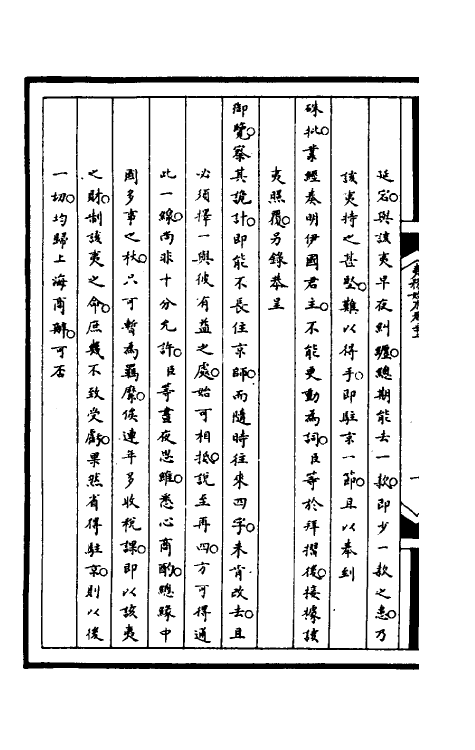 延宕與該夷早夜糾纏總期能去一款即少一款之患乃
該夷持之甚堅難以得手即駐京一節且以奉到
硃批業經奏明伊國君主不能更動為詞臣等於拜摺後接據該
夷照覆另錄恭呈
御覽察其詭計即能不長住京師而隨時往來四字未肯改去且
必須擇一與彼有益之處始可相抵說至再四方可得通
此一線尚非十分允許臣等晝夜思維悉心商酌總緣中
國多事之秋只可暫為羈縻俟連年多收稅課即以該夷
之財制該夷之命庶幾不致受虧果然省得駐京則以後
一切均歸上海商辦可否